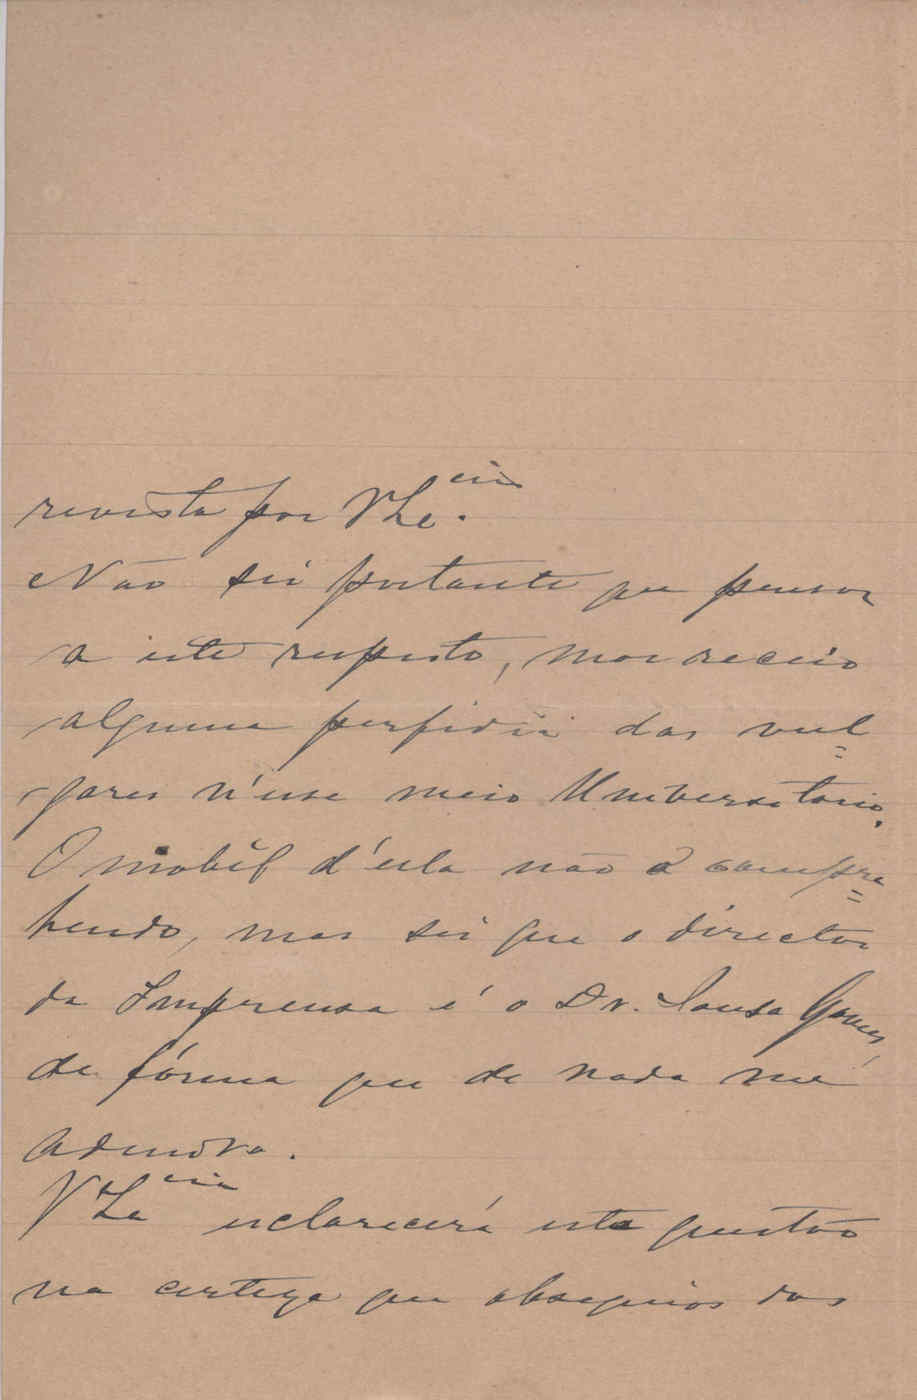 revista por V Ex.cia
Não sei portanto que pensar
a este respeito, mas receio
alguma perfidia das vul=
gares n'esse meio Universitario.
O mobil d'ella não o compre=
hendo, mas sei que o director
da Imprensa é o Dr. Sousa Gomes,
de fórma que de nada me
admiro.
V Ex.cia esclarecerá esta questão
na certeza que obsequios dos